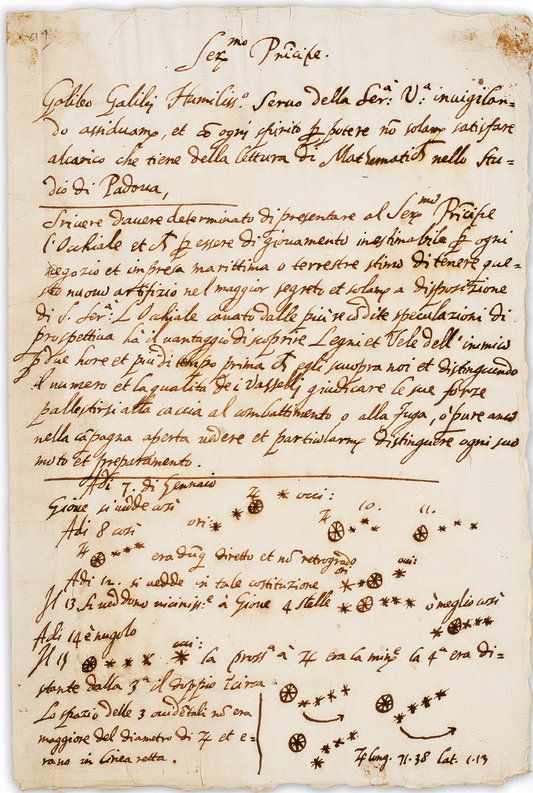 Ser.mo Principe.
Galileo Galilei Humiliss.o Seruo della Ser.a V.a inuigilan-
do assiduamte, et cō ogni spirito ꝑ potere nō solamte satisfare
al carico che tiene della lettura di Mathematica nello Stu-
dio di Padoua,
Scriuere dauere determinato di presentare al Ser.mo Pricipe
l'Occhiale et ꝑ essere di giouamento inestimabile ꝑ ogni
negozio et impresa marittima o terrestre stimo di tenere que-
sto nuouo artifizio nel maggior segreto et solamte a dispositione
di S. Ser.a L'Occhiale cauato dalle più recōdite speculazioni di
prospettiua hà il vantaggio di scoprire Legni et Vele dell'inimico
ꝑ due hore et più di tempo prima egli scuopra noi et distinguendo
il numero et la qualità dei Vasselli giudicare le sue forze
pallestirsi alla caccia al combattimento o alla fuga, o pure anco
nella cāpagna aperta vedere et particolarmte distinguere ogni suo
moto et preparamento.
Adi 7. di Gennaio
Gioue si vedde così ♃ occi:
Adi 8 così ori: 10. 11.
♃ era dūq diretto et nō retrogrado
Adi 12. si vedde in tale costituzione ori occi:
Il 13 si veddono vicinissi.e à Gioue 4 stelle ò meglio così
Adi 14 è nugolo
Il 15 occi: la pross.a à ♃ era la min.e la 4.a era di-
stante dalla 3.a il doppio Icirca
Lo spazio delle 3 occidētali nō era
maggiore del diametro di ♃ et e-
rano in linea retta.
♃ long. 71.38 lat. 1.13